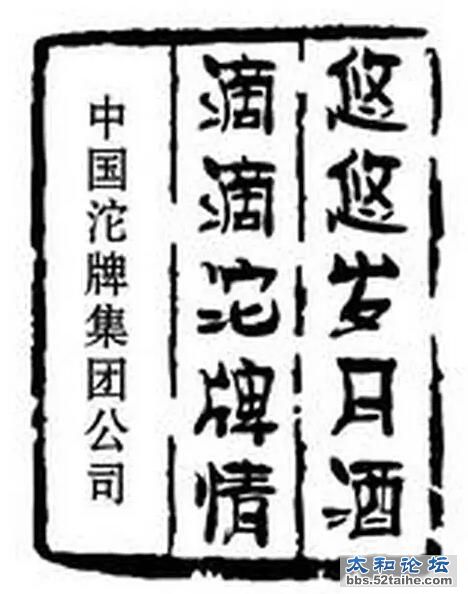 悠悠岁月酒
滴滴沱牌情
中国沱牌集团公司
太和论坛
bbs.52taihe.com